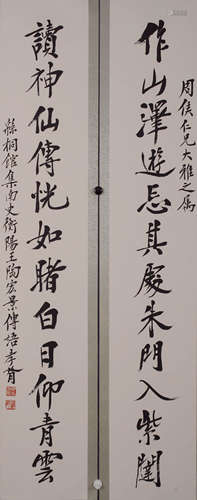 周侯仁兄大雅之屬
作山澤遊忘其處朱門入紫闥
讀神仙傳恍如睹白日仰青雲
縣桐館集南史衡陽王陶宏景傳語孝胥